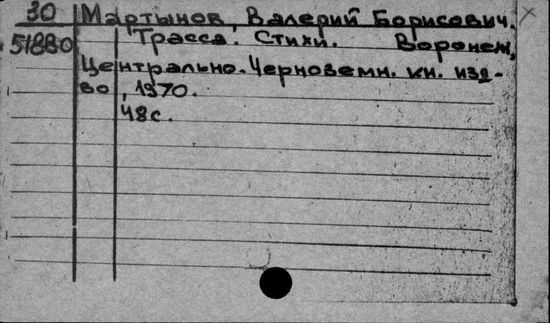 30 Мартынов, Валерий Борисович.
51880 Трасса. Стихи. Воронеж,
Центрально-Черноземн. кн. изд-
во, 1970.
48с.